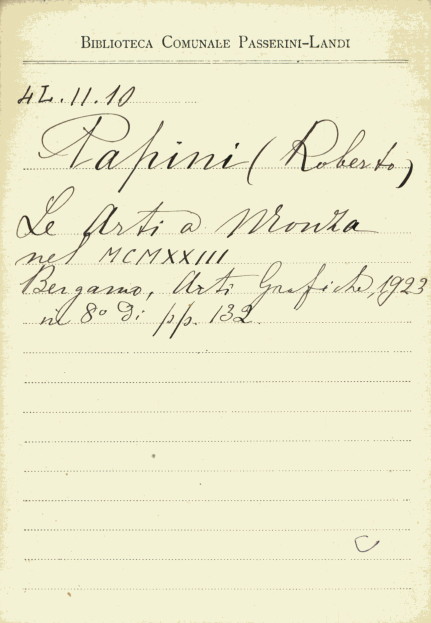 BIBLIOTECA COMUNALE PASSERINI-LANDI
4L.11.10
Papini (Roberto)
Le Arti a Monza
nel MCMXXIII
Bergamo, Arti Grafiche, 1923
in 8° di pp. 132.
C